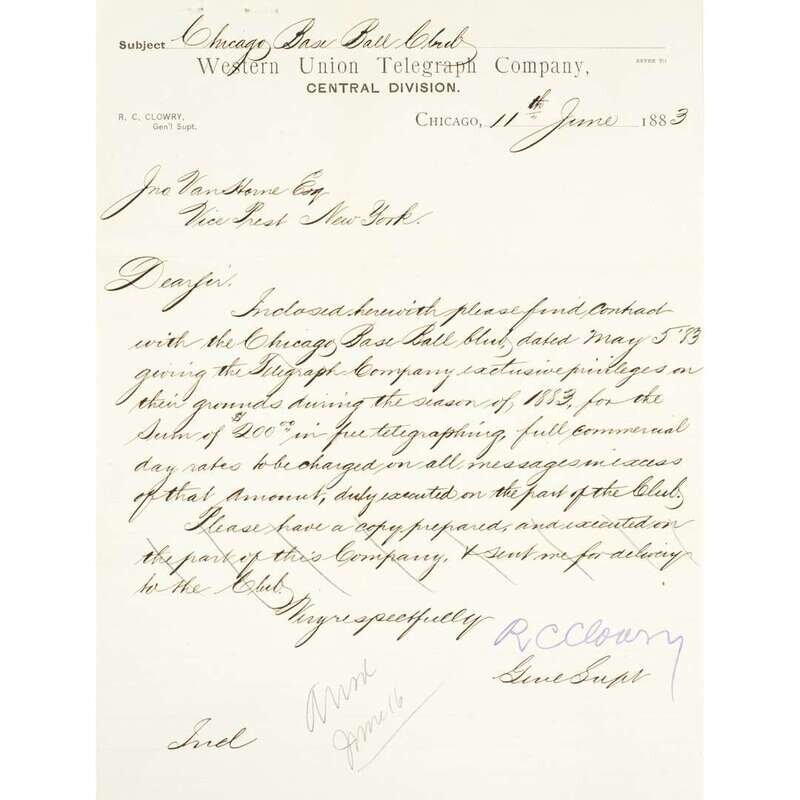 Subject Chicago Base Ball Club
Western Union Telegraph Company,
REFER TO
CENTRAL DIVISION.
R. C. CLOWRY,
Gen'l Supt.
CHICAGO, 11th June 1883
Jno Van Horne Esq
Vice Prest New York.
Dear Sir.
Inclosed herewith please find contract
with the Chicago Base Ball Club, dated May 5' 83
giving the Telegraph Company exclusive privileges on
their grounds during the season of 1883, for the
sum of $200 00 in free telegraphing, full commercial
day rates to be charged on all messages in excess
of that amount, duly executed on the part of the Club.
Please have a copy prepared, and executed on
the part of this Company, & sent me for delivery
to the Club.
Very respectfully
R C Clowry
Genl Supt
June 16
Incl